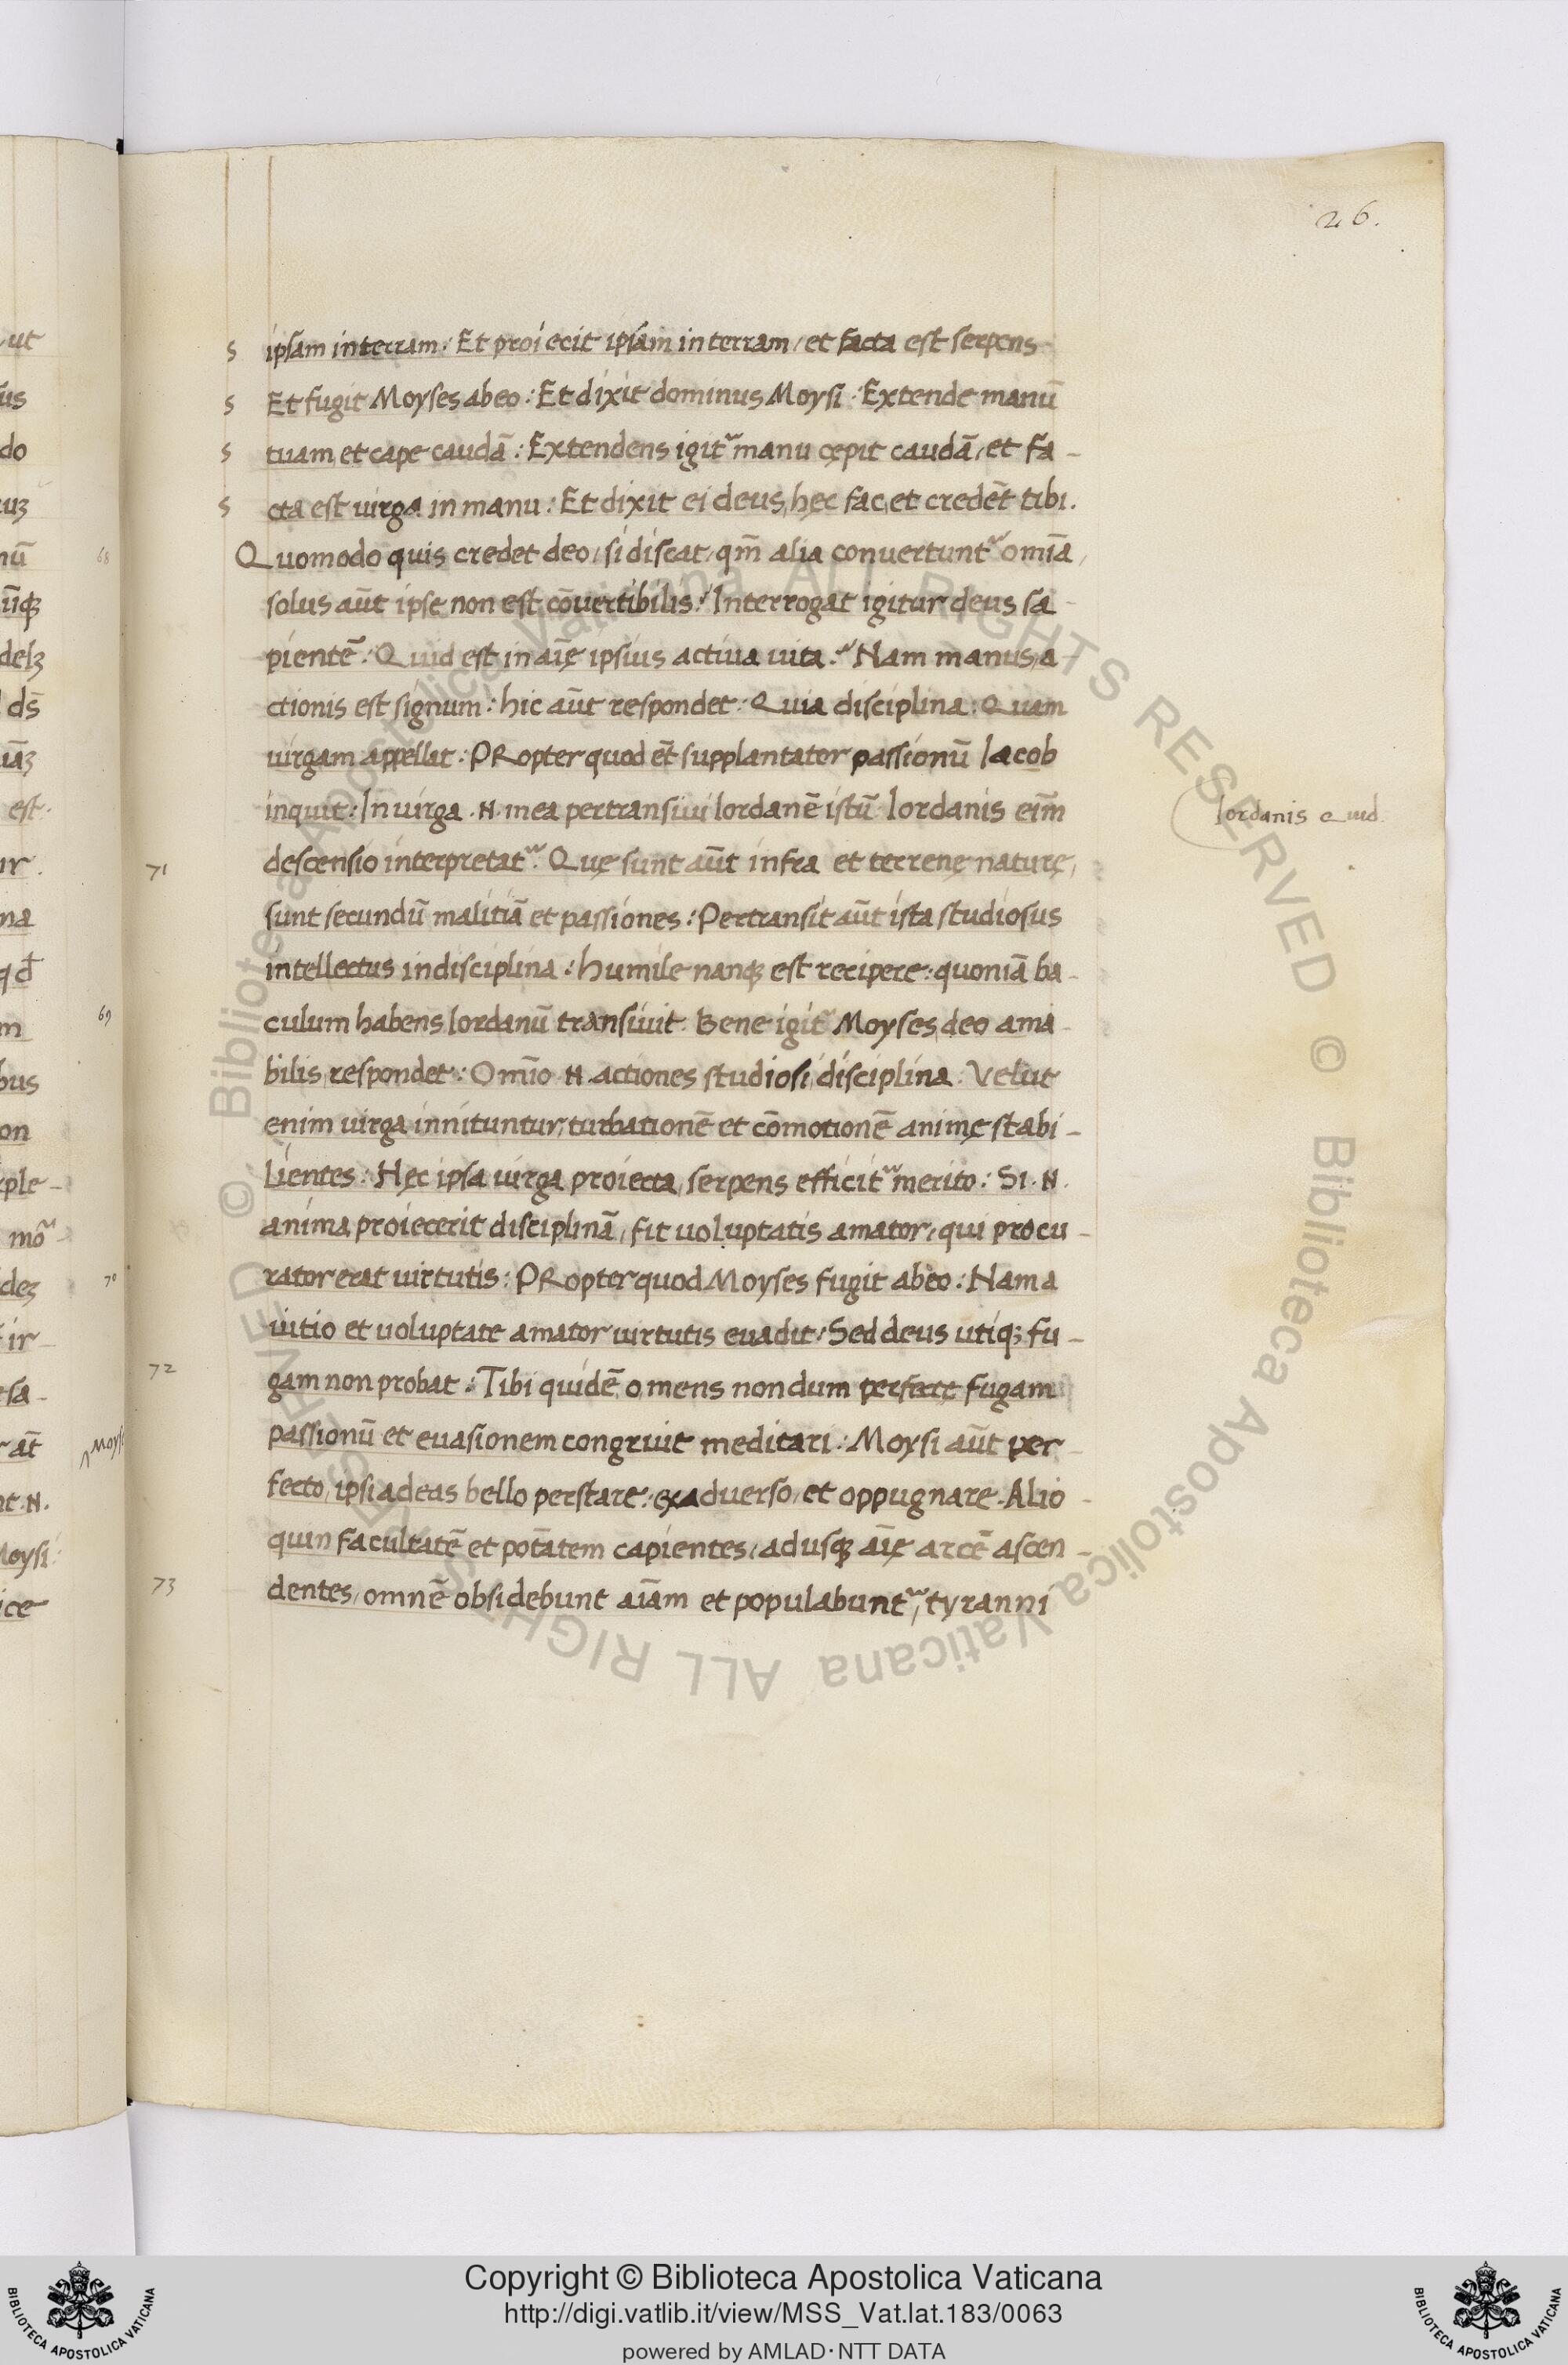 26.
s ipsam in terram: Et proiecit ipsam in terram, et facta est serpens
s Et fugit Moyses ab eo: Et dixit dominus Moysi: Extende manū
s tuam et cape caudā: Extendens igit᷑ manu cępit caudā, et fa-
s cta est uirga in manu: Et dixit ei deus, hęc fac, et credēt tibi.
68 Quomodo quis credet deo, si discat, qm̄ alia conuertunt᷑ omīa,
solus aūt ipse non est cōuertibilis? Interrogat igitur deus sa-
pientē: Quid est in aīę ipsius actiua uita? Nam manus, a-
ctionis est signum: hic aūt respondet: Quia disciplina: Quam
uirgam appellat: PRopter quod et̄ supplantator passionū Iacob
inquit: In uirga .N. mea pertransiui Iordanē istū Iordanis eim̄
Iordanis Quid.
71 descensio interpretat᷑. Quę sunt aūt infra et terrenę naturę,
sunt secundū malitiā et passiones: Pertransit aūt ista studiosus
intellectus in disciplina: humile nanq; est recipere: quoniā ba-
69 culum habens Iordanū transiuit: Bene igit᷑ Moyses, deo ama-
bilis, respondet: Omīo .N. actiones studiosi, disciplina. Velut
enim uirga innituntur, turbationē et cōmotionē animę stabi-
lientes: Hęc ipsa uirga proiecta, serpens efficit᷑ merito: Si .N.
anima proiecerit disciplinā, fit uoluptatis amator, qui procu-
70 rator erat uirtutis: PRopter quod Moyses fugit ab eo: Nam a
uitio et uoluptate amator uirtutis euadit: Sed deus utiq; fu-
72 gam non probat: Tibi quidē, o mens nondum perfecte fugam
passionū et euasionem congruit meditari: Moysi aūt per-
fecto, ipsi ad eas bello perstare: ex aduerso, et oppugnare. Alio-
quin facultatē et potātem capientes, ad usq; aīę arcē ascen-
73 dentes, omnē obsidebunt aīam et populabunt᷑, tyranni
Copyright © Biblioteca Apostolica Vaticana
http://digi.vatlib.it/view/MSS_Vat.lat.183/0063
powered by AMLAD·NTT DATA
BIBLIOTECA APOSTOLICA VATICANA
BIBLIOTECA APOSTOLICA VATICANA
© Biblioteca Apostolica Vaticana ALL RIGHTS RESERVED © Biblioteca Apostolica Vaticana ALL RIGHTS RESERVED